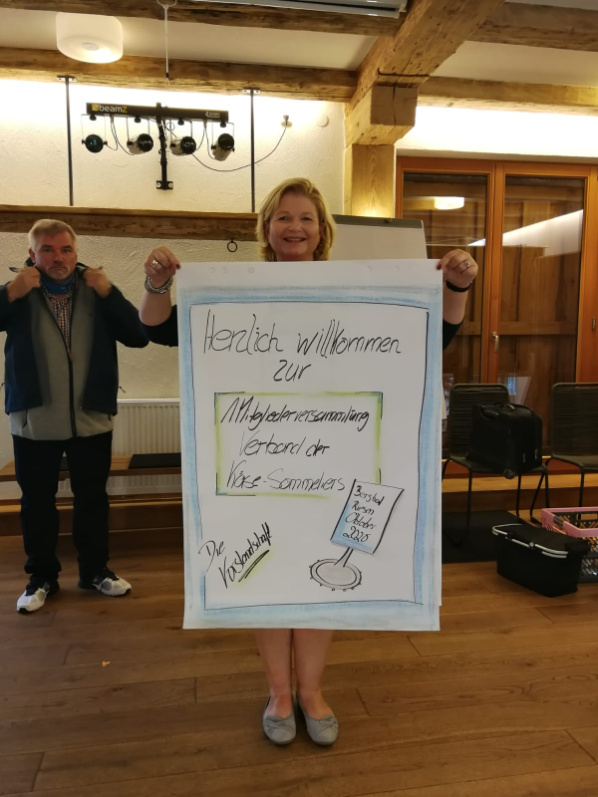 beamZ
Herzlich willkommen
zur
1. Mitgliederversammlung
Verband der
Käse-Sommeliers
Die
Vorstandschaft
Oktober
2020